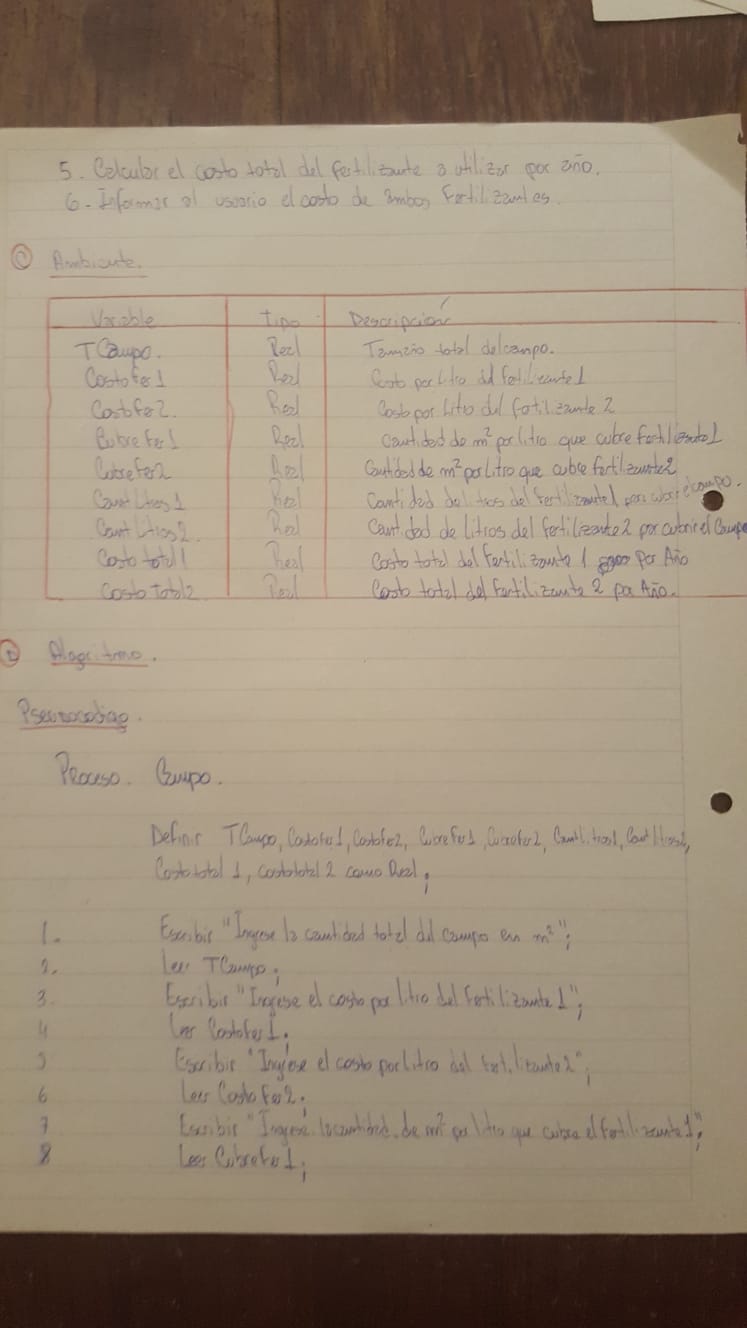 5. Calcular el costo total del fertilizante a utilizar por año.
6- Informar al usuario el costo de ambos fertilizantes.
C Ambiente.
Variable Tipo Descripción
TCampo. Real Tamaño total del campo.
Costofer1 Real Costo por litro del fertilizante1
Costofer2. Real Costo por Litro del fertilizante 2
Cubrefer1 Real Cantidad de m² por litro que cubre fertilizante1
Cubrefer2 Real Cantidad de m² por Litro que cubre fertilizante2
CantLitros1 Real Cantidad de litros del fertilizante1 para cubrir el campo.
CantLitros2. Real Cantidad de Litros del fertilizante2 por cubrir el Campo
Costo total1 Real Costo total del fertilizante 1 Por Año
Costo Total2 Real Costo total del fertilizante 2 por Año.
D Algoritmo.
Pseudocodigo.
Proceso. Campo.
Definir TCampo, Costofer1, Costofer2, Cubrefer1, Cubrefer2, CantLitros1, CantLitros2,
Costototal 1, costototal 2 como Real;
1. Escribir "Ingrese la cantidad total del campo en m²";
2. Leer TCampo;
3. Escribir "Ingrese el costo por litro del fertilizante 1";
4 Leer Costofer1;
5 Escribir "Ingrese el costo por litro del fertilizante2";
6 Leer Costofer2;
7 Escribir "Ingrese la cantidad de m² por litro que cubre el fertilizante1";
8 Leer Cubrefer1;